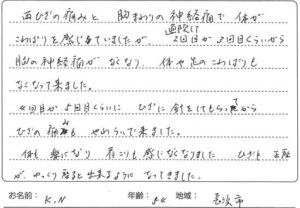 両ひざの痛みと 胸まわりの神経痛で 体が
こわばりを感じていましたが、通院して2回目か3回目くらいから
胸の神経痛がなくなり、体や足のこわばりも
なくなって来ました。
4回目か5回目くらいに ひざに針をしてもらってから
ひざの痛みも やわらいで来ました。
体も楽になり 肩こりも感じなくなりました ひざも 正座
が ゆっくり座ると出来るように なってきました。
お名前: K.N 年齢: 54 地域: 市